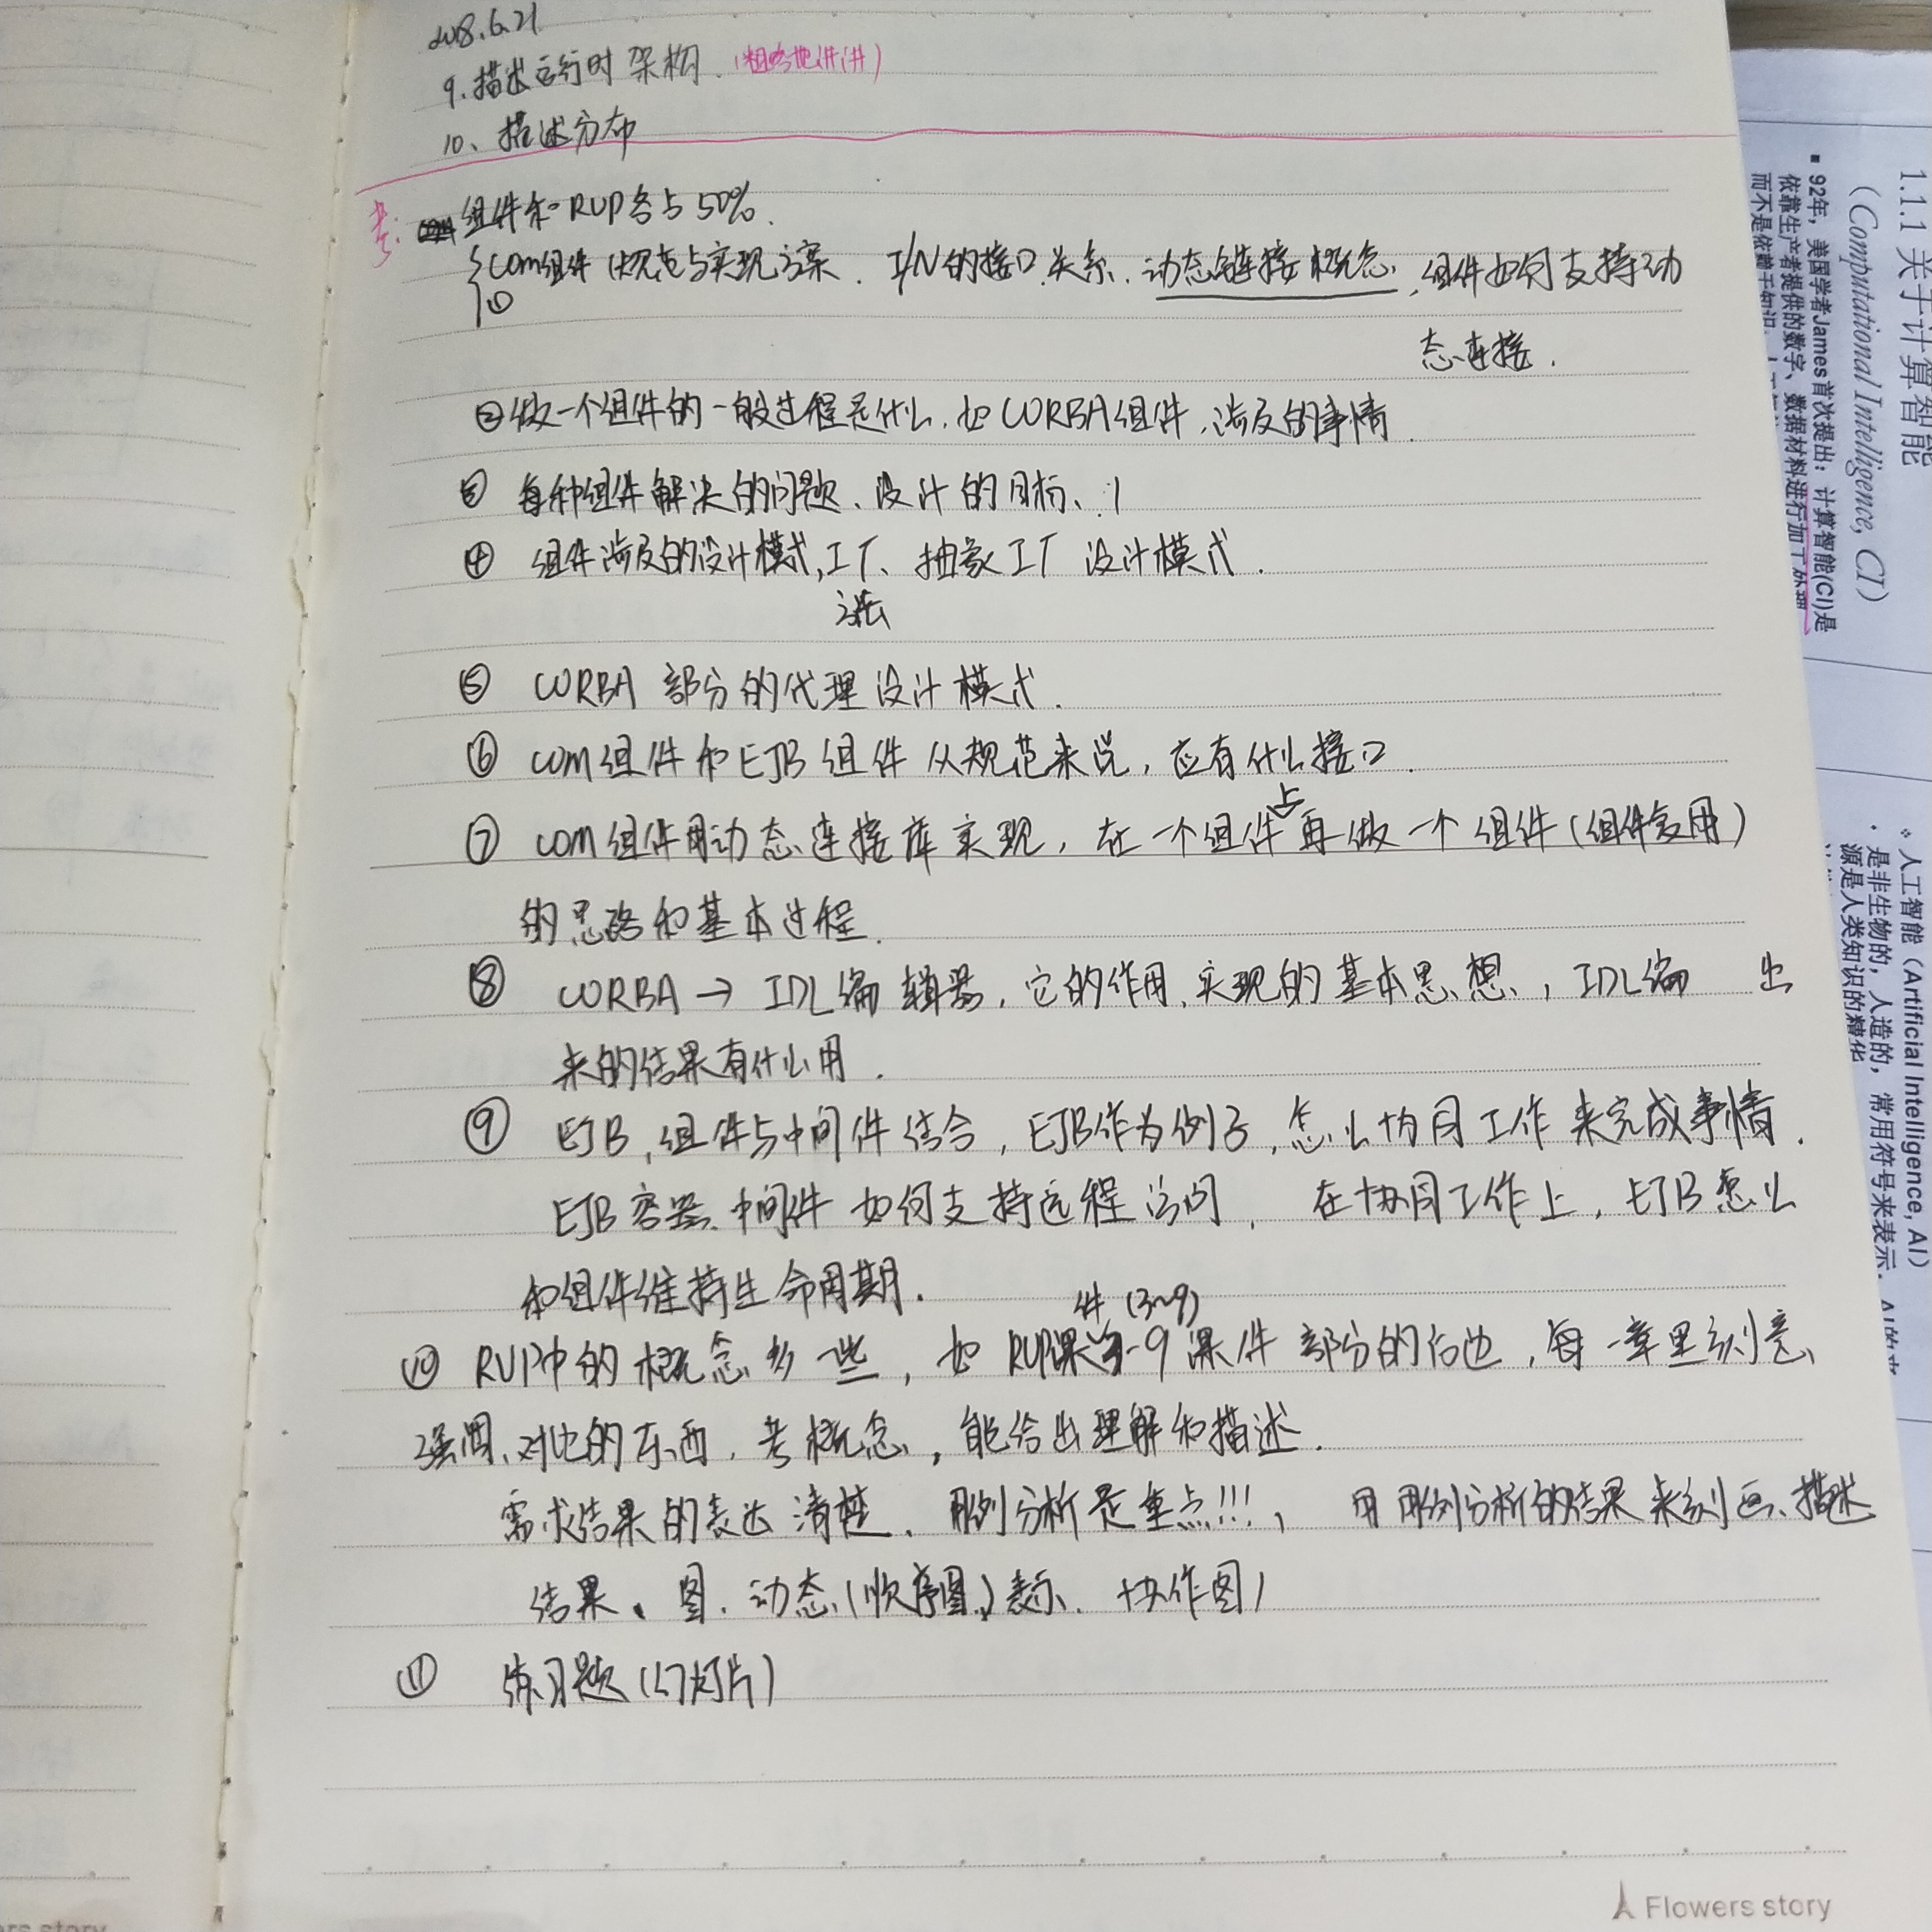 2018.6.21.
9.描述运行时架构.(粗略地讲讲)
10、描述分布
考: 组件和RUP各占50%.
① com组件(规范与实现方案. 的接口关系.动态链接概念,组件如何支持动
态连接.
②做一个组件的一般过程是什么.如CORBA组件,涉及的事情.
③ 每种组件解决的问题、设计的目标、
④ 组件涉及的设计模式,工厂、抽象工厂设计模式.
方法
⑤ CORBA部分的代理设计模式.
⑥ com组件和EJB组件从规范来说,应有什么接口.
⑦ com组件用动态连接库实现,在一个组件上再做一个组件(组件复用)
的思路和基本过程.
⑧ CORBA→IDL编辑器,它的作用,实现的基本思想,IDL编 出
来的结果有什么用.
⑨ EJB,组件与中间件结合,EJB作为例子,怎么协同工作来完成事情.
EJB容器、中间件如何支持远程访问, 在协同工作上,EJB怎么
和组件维持生命周期.
⑩ RUP中的概念多一些,如RUP课件(3~9)课件部分的右边,每一章里刻意
强调、对比的东西.考概念,能给出理解和描述.
需求结果的表达清楚、用例分析是重点!!!, 用用例分析的结果来刻画、描述
结果、图.动态(顺序图)表示、协作图)
⑪ 练习题(幻灯片)
Flowers story
1.1.1 关于计算智能
(Computational Intelligence, CI)
▪ 92年,美国学者James首次提出:计算智能(CI)是
依靠生产者提供的数字、数据材料进行加工处理
而不是依赖于知识
人工智能(Artificial Intelligence, AI)
是非生物的,人造的,常用符号来表示,AI的来
源是人类知识的精华